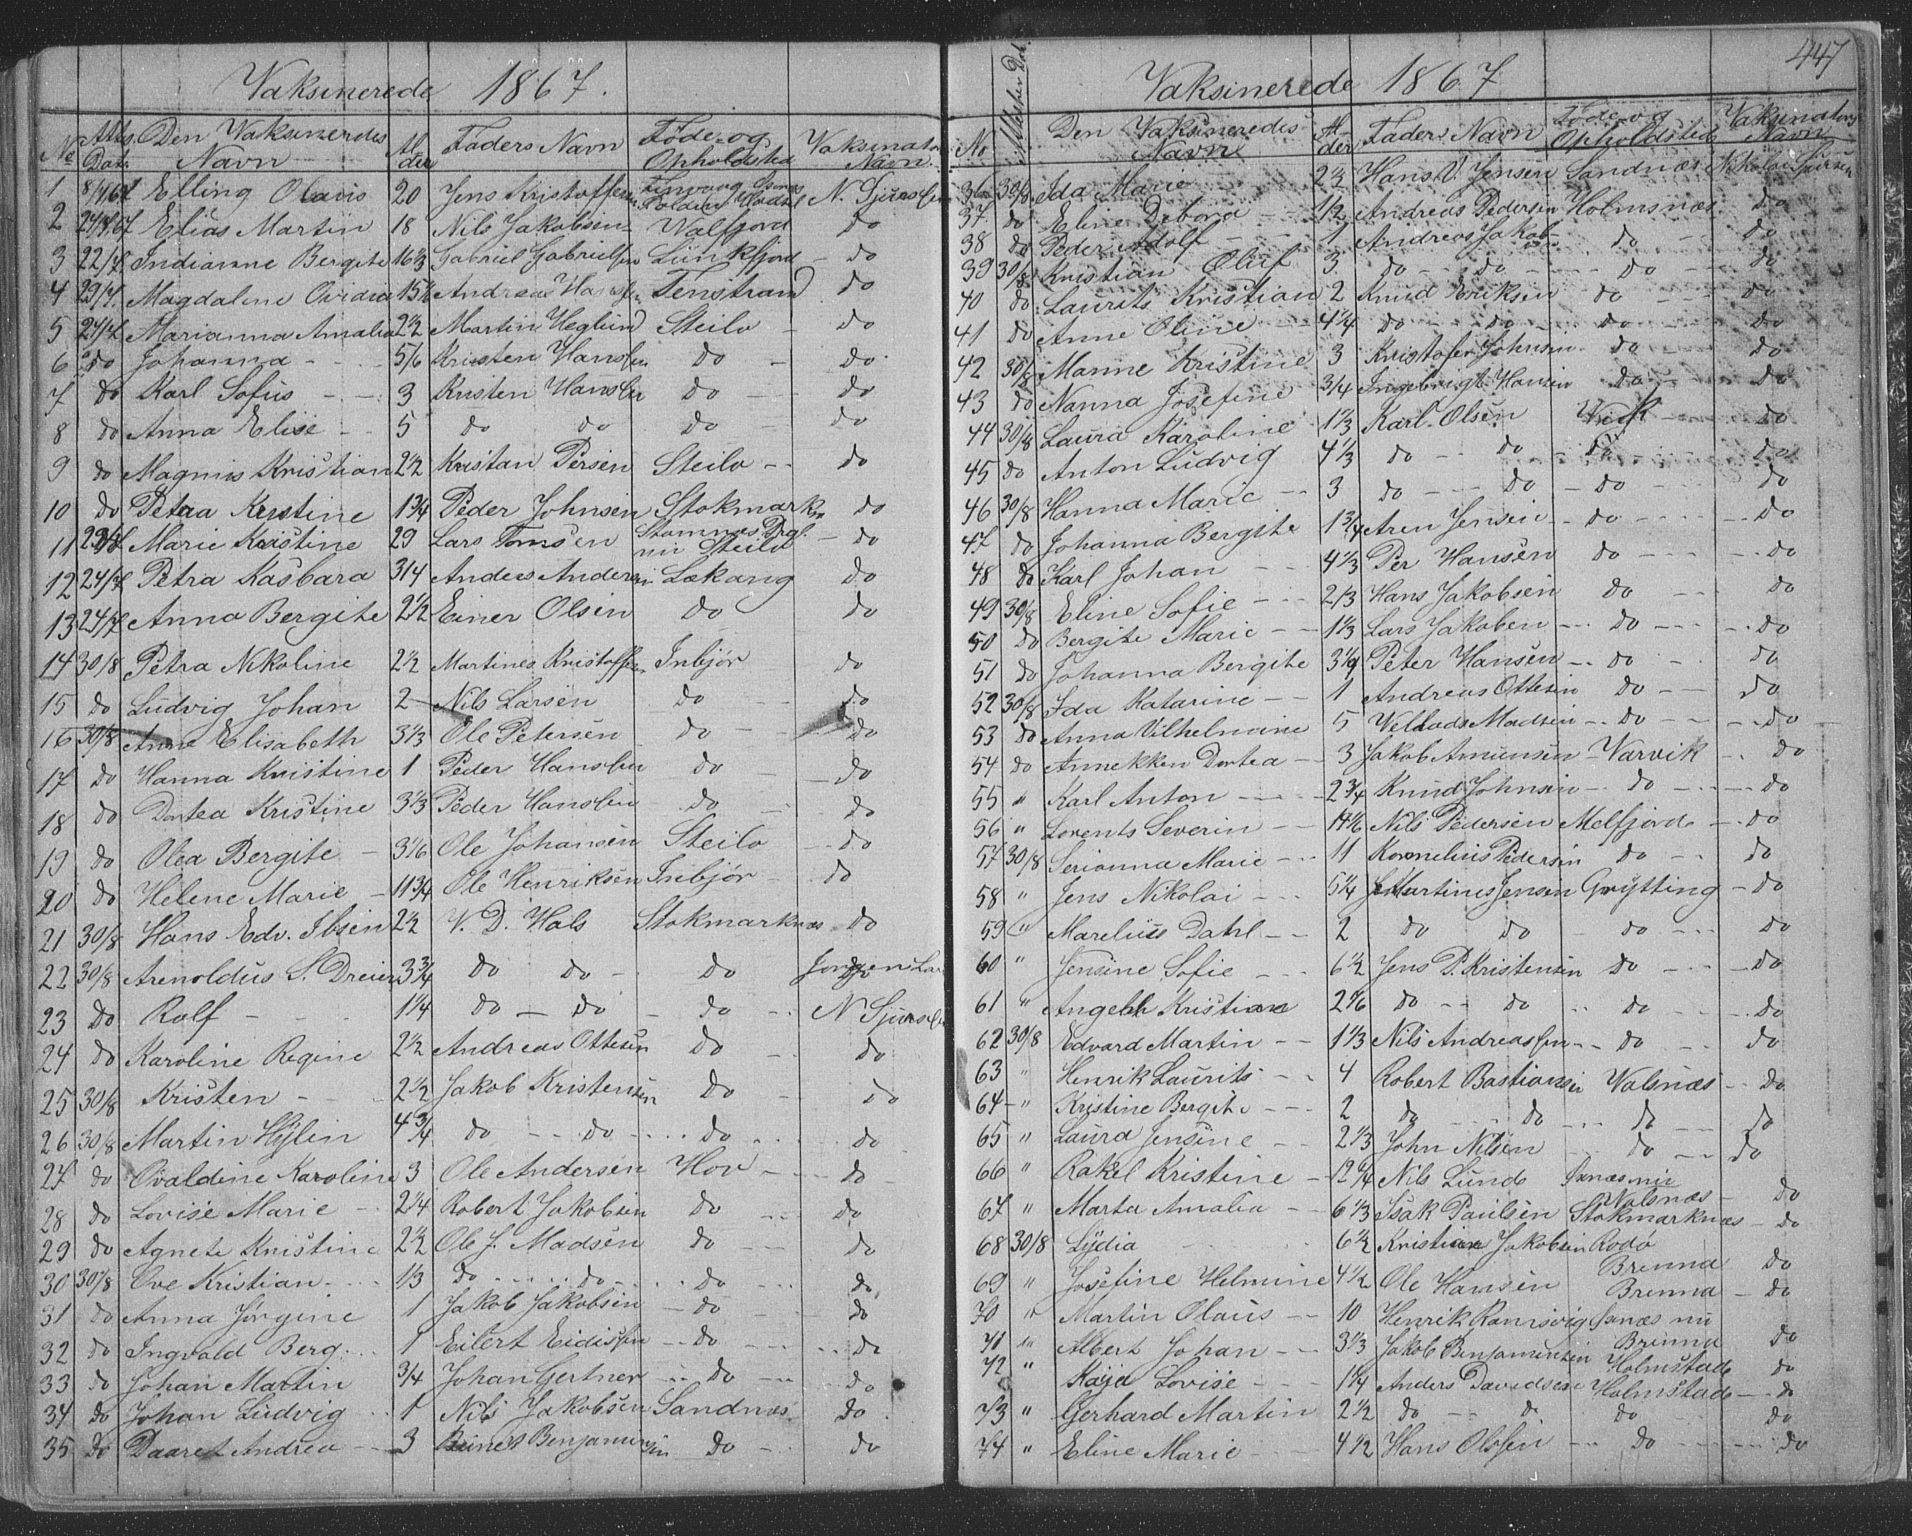 Vaksinerede 1867.
No Atts. Dat. Den Vaksineredes Navn Alder Faders Navn Føde- og Opholdsted Vaksinators Navn.
1 8/4 67 Elling Olaus 20 Jens Kristoffersen N. Sjursen
2 24/4 67 Elias Martin 18 Nils Jakobsen Valfjord do
3 22/7 Indianne Bergite 16 1/3 Gabriel Gabrielsen Lunkfjord - do
4 29/7 Magdaline Ovidia 15 1/2 Andreas Hansen Fenstrand do
5 24/7 Marianna Amalia 2 1/2 Martin Heglund Steilo - do
6 do Johanna - 5/6 Kristen Hanssen do - do
7 do Karl Sofus - 3 Kristen Hanssen do - do
8 do Anna Elise - 5 do do do - do
9 do Magnus Kristian 2 1/2 Kristan Persen Steilo - do
10 do Petra Kristine 1 3/4 Peder Johnsen Stokmarkn do
11 23/7 Marie Kristine 29 Lars Tomsen Stamnes Prgl. nu Steilo - do
12 24/7 Petra Kasbara 3/4 Anders Andersen Lekang do
13 24/7 Anna Bergite 2 1/2 Einer Olsen do do
14 30/8 Petra Nikoline 2 1/2 Martines Kristoffersen Inbjør do
15 do Ludvig Johan 2 Nils Larsen do - do
16 30/8 Anne Elisabeth 3 1/3 Ole Petersen do - do
17 do Hanna Kristine 1 Peder Hanssen do - do
18 do Dortea Kristine 3 1/3 Peder Hanssen do - do
19 do Olea Bergite - 3 1/6 Ole Johansen Steilo - do
20 do Helene Marie - 11 3/4 Ole Henriksen Inbjør - do
21 30/8 Hans Edv. Ibsen 2 1/2 V. D. Hals Stokmarknæs do
22 30/8 Arnoldus S. Dreier 3 3/4 do do - do Jørgen Lar
23 do Rolf - 1 1/4 do - do - do N Sjursen
24 do Karoline Regine 2 1/2 Andreas Ottesen do - do
25 30/8 Kristen - 2 1/2 Jakob Kristensen do - do
26 30/8 Martin Hylin 4 3/4 do - do - do - do
27 do Ovaldine Karoline 3 Ole Andersen Hov - do
28 do Lovise Marie - 2 1/4 Robert Jakobsen do - do
29 do Agnete Kristine 2 1/2 Ole J. Madsen do - do
30 30/8 Ove Kristian - 1/3 do - do - do - do
31 do Anna Jørgine 1 Jakob Jakobsen - do - do
32 do Ingvald Berg. 1 Eilert Eidissen - do - do
33 do Johan Martin 3/4 Johan Gertner - do - do
34 do Johan Ludvig 1 Nils Jakobsen Sandnæs do
35 do Daaret Andrea - 3 Benjaminsen do - do
Vaksinerede 1867
447
No Attester Dat. Den Vaksineredes Navn Alder Faders Navn Føde og Opholdsted Vaksinators Navn
36 30/8 Ida Marie 2 1/2 Hans V. Jensen Sandnæs Nikolai Sjursen
37 do Eline Debora - 1/2 Andreas Pedersen Holmsnæs do
38 do Peder Adolf - 1 Andreas Jakob- do - do
39 30/8 Kristian Oluf 3 do - do - do - do
40 do Laurits Kristian 2 Knud Eriksen do - do
41 do Anne Oline - 4 1/4 do - do - do - do
42 30/8 Manne Kristine 3 Kristofer Johnsen do - do
43 do Nanna Josefine 3/4 Ingebrigt Hansen do - do
44 30/8 Laura Karoline 1 1/3 Karl Olsen Vik - do
45 do Anton Ludvig 4 1/3 do - do - do - do
46 30/8 Hanna Marie - 3 do - do - do - do
47 do Johanna Bergite 1 3/4 Aren Jensen - do - do
48 do Karl Johan - 4 1/3 Per Hansen do - do
49 30/8 Eline Sofie - 2/3 Hans Jakobsen do - do
50 do Bergite Marie - 1 1/3 Lars Jakobsen - do - do
51 do Johanna Bergite 3 1/4 Peter Hansen - do - do
52 30/8 Ida Katarine - 1 Andreas Ottesen do - do
53 do Anna Vilhelmine 5 Vellads Madsen - do - do
54 do Annekken Dortea - 3 Jakob Amunsen - Varvik - do
55 " Karl Anton - 2 3/4 Knud Johnsen - do - do
56 " Lorents Severin - 14 1/2 Nils Pedersen Melfjord - do
57 30/8 Serianna Marie - 11 Kornelius Pedersen do - do
58 " Jens Nikolai - 5 1/4 Martines Jensen Grytting - do
59 " Marelius Dahl - 2 do do - do - do
60 " Jensine Sofie - 6 1/2 Jens P. Kristensen do - do
61 " Angell Kristiane 2 1/6 do - do - do - do
62 30/8 Edvard Martin - 1 1/3 Nils Andreassen - do - do
63 " Henrik Laurits - 4 Robert Bastiansen Valsnæs - do
64 " Kristine Bergite - 2 do - do - do - do
65 " Laura Jensine - 2 1/3 John Nilsen - do - do
66 " Rakel Kristine - 12 Nils Lund Ixnæs nu Valsnæs - do
67 " Marta Amalia - 6 1/3 Isak Paulsen Stokmarknæs - do
68 30/8 Lydia - 6 1/2 Kristian Jakobsen Rodø Brenna do
69 " Josefine Helmine 4 1/2 Ole Hansen Brenna - do
70 " Martin Olaus - 10 Henrik Ramsvig Ixnæs nu Brenna do
71 " Albert Johan - 3 1/3 Jakob Benjaminsen Holmstad do
72 " Kaja Lovise - 1 1/4 Anders Davidsen Holmstad - do
73 " Gerhard Martin 2 1/2 do - do do - do
74 " Eline Marie - 4 1/2 Hans Olssen - do - do